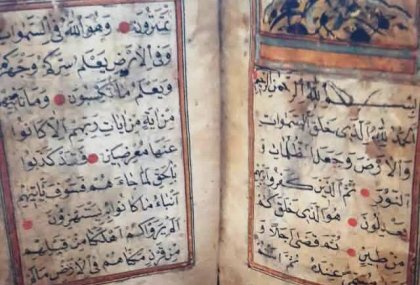 بسم الله الرحمن الرحيم
الحمد لله الذي خلق السموات
والارض وجعل الظلمات و
النور ثم الذين كفروا بربهم
يعدلون هو الذي خلقكم
من طين ثم قضى اجلا و
مسمى عنده ثم
تمترون وهو الله في السموات
وفي الارض يعلم سركم وجهركم
ويعلم ما تكسبون وما تاتيهم
من اية من ايات ربهم الا كانوا
عنها معرضين فقد كذبوا
بالحق لما جاءهم فسوف ياتيهم
انباء ما كانوا به يستهزؤن
الم يروا كم اهلكنا من قبلهم
من قرن مكناهم في الارض مالم